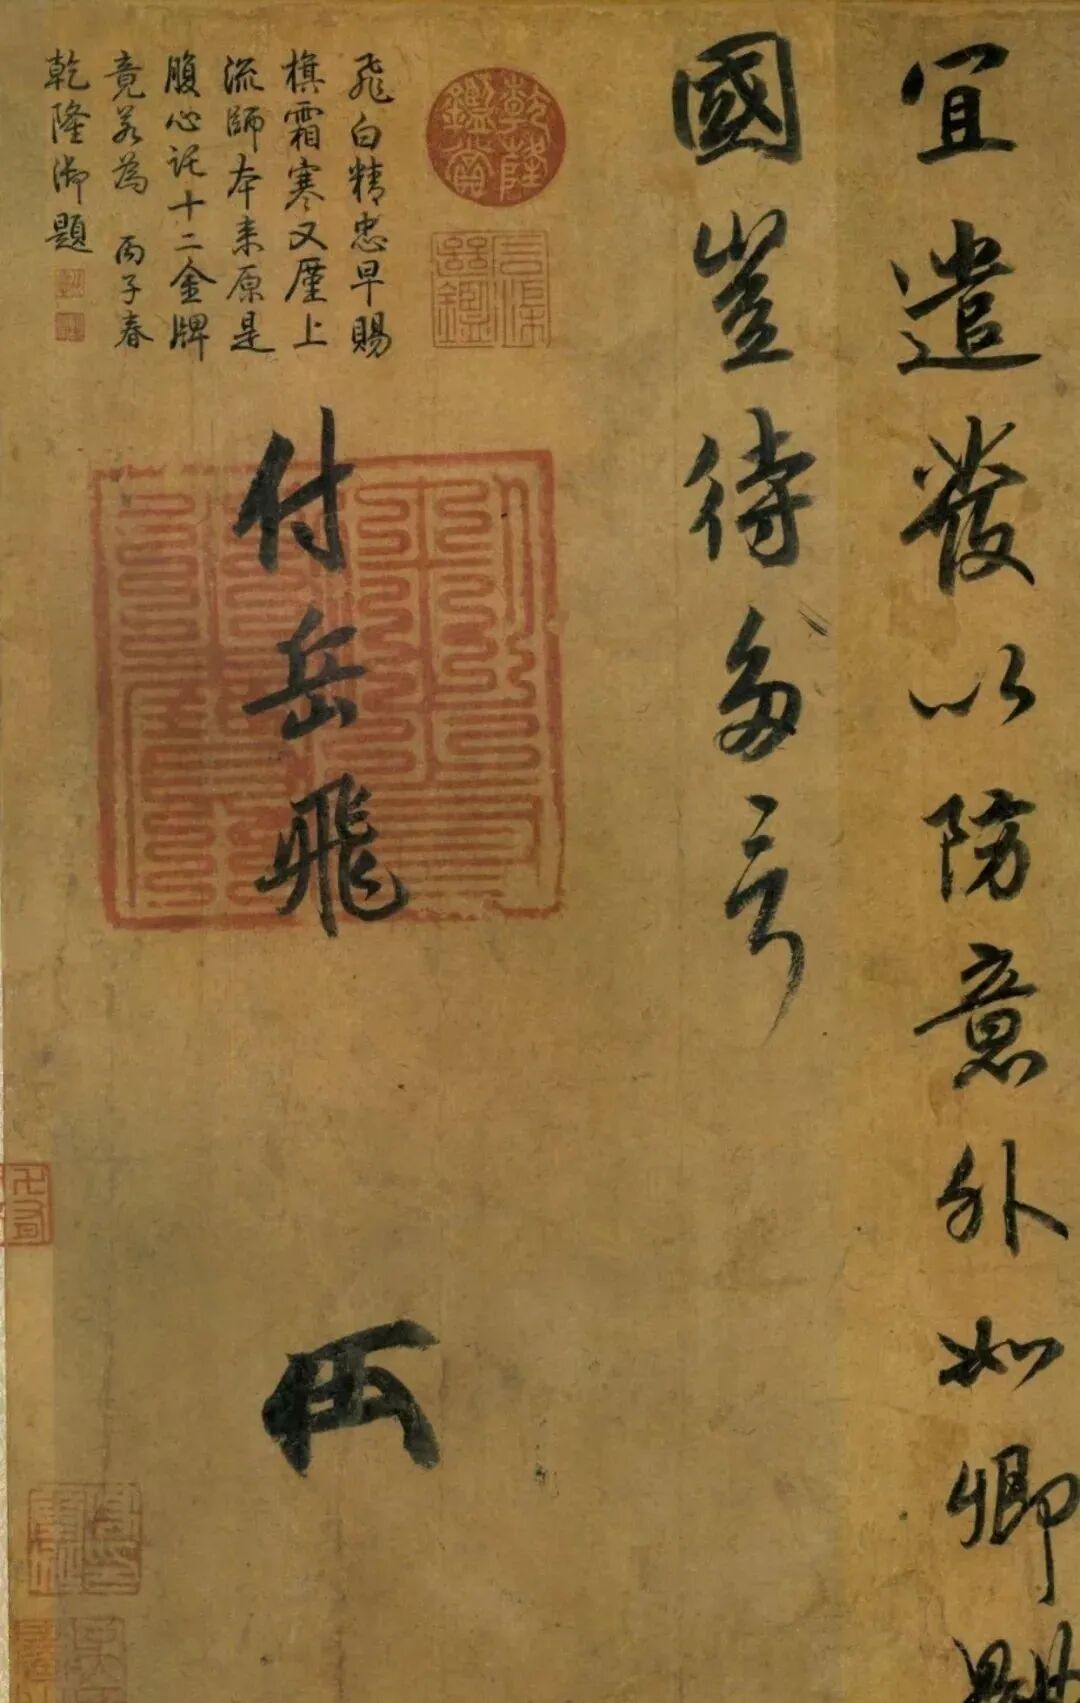 宜遣發以防意外如卿體
國豈待多言
付岳飛
飛白精忠早賜
旗霜寒又廑上
流師本来原是
腹心託十二金牌
竟若為 丙子春
乾隆御題
乾隆鑑賞